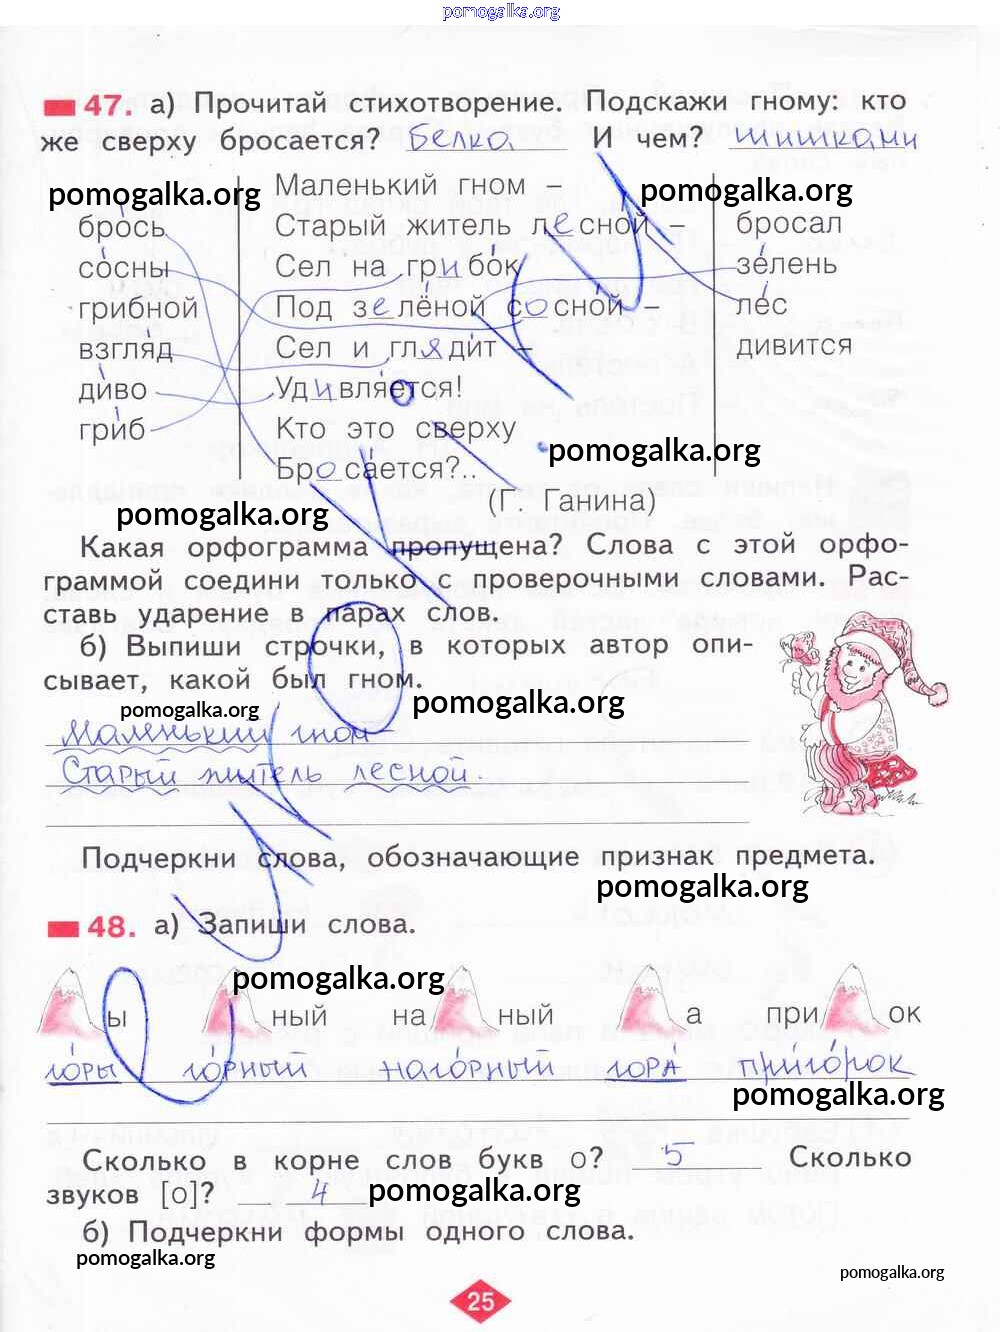 pomogalka.org
47. а) Прочитай стихотворение. Подскажи гному: кто
же сверху бросается? Белка И чем? шишками
pomogalka.org pomogalka.org
Маленький гном –
бро́сь Старый житель лесно́й – бросал
со́сны Сел на грибо́к зе́лень
грибной Под зелёной сосно́й – ле́с
взгля́д Сел и гляди́т – дивится
ди́во Удивля́ется!
гри́б Кто это сверху
Броса́ется?..
pomogalka.org
(Г. Ганина)
pomogalka.org
Какая орфограмма пропущена? Слова с этой орфо-
граммой соедини только с проверочными словами. Рас-
ставь ударение в парах слов.
б) Выпиши строчки, в которых автор опи-
сывает, какой был гном.
pomogalka.org pomogalka.org
Маленький гном –
Старый житель лесной.
Подчеркни слова, обозначающие признак предмета.
pomogalka.org
48. а) Запиши слова.
pomogalka.org
ы ный на ный а при ок
го́ры го́рный наго́рный гора́ при́го́рок
pomogalka.org
Сколько в корне слов букв о? 5 Сколько
звуков [о]? 4
pomogalka.org
б) Подчеркни формы одного слова.
pomogalka.org
pomogalka.org
25